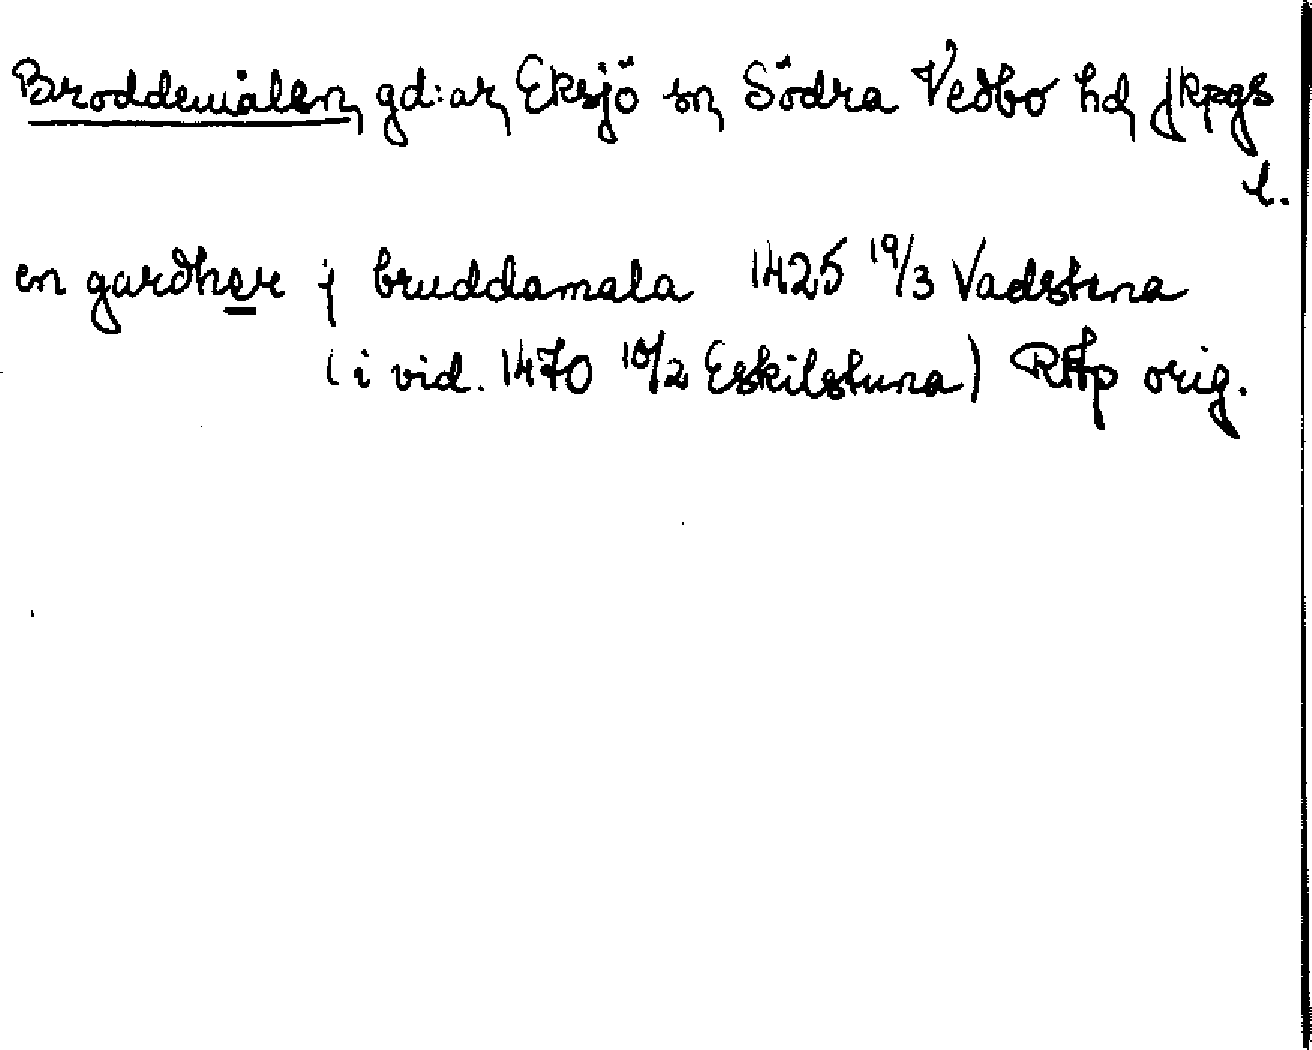 Broddemålen, gd:ar, Eksjö sn, Södra Vedbo hd, Jkpgs
l.
en gardher j bruddamala 1425 19/3 Vadstena
(i vid. 1470 10/2 Eskilstuna) RAp orig.